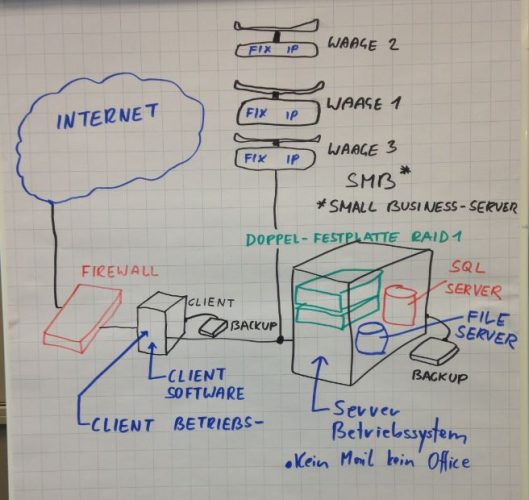 WAAGE 2
FIX IP
INTERNET
WAAGE 1
FIX IP
WAAGE 3
FIX IP
SMB*
*SMALL BUSINESS-SERVER
DOPPEL-FESTPLATTE RAID1
FIREWALL
SQL
SERVER
CLIENT
BACKUP
FILE
SERVER
BACKUP
CLIENT
SOFTWARE
CLIENT BETRIEBS-
Server
Betriebssystem
•Kein Mail kein Office